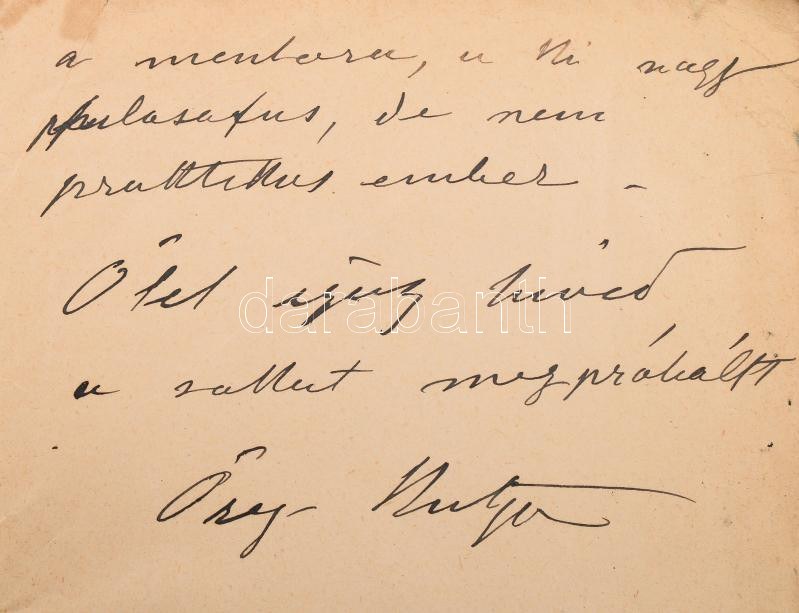 a mentora, a ki nagy
philosofus, de nem
praktikus ember –
Ölel igaz híved
a sokat megpróbált
Öreg Kutya
darabanth